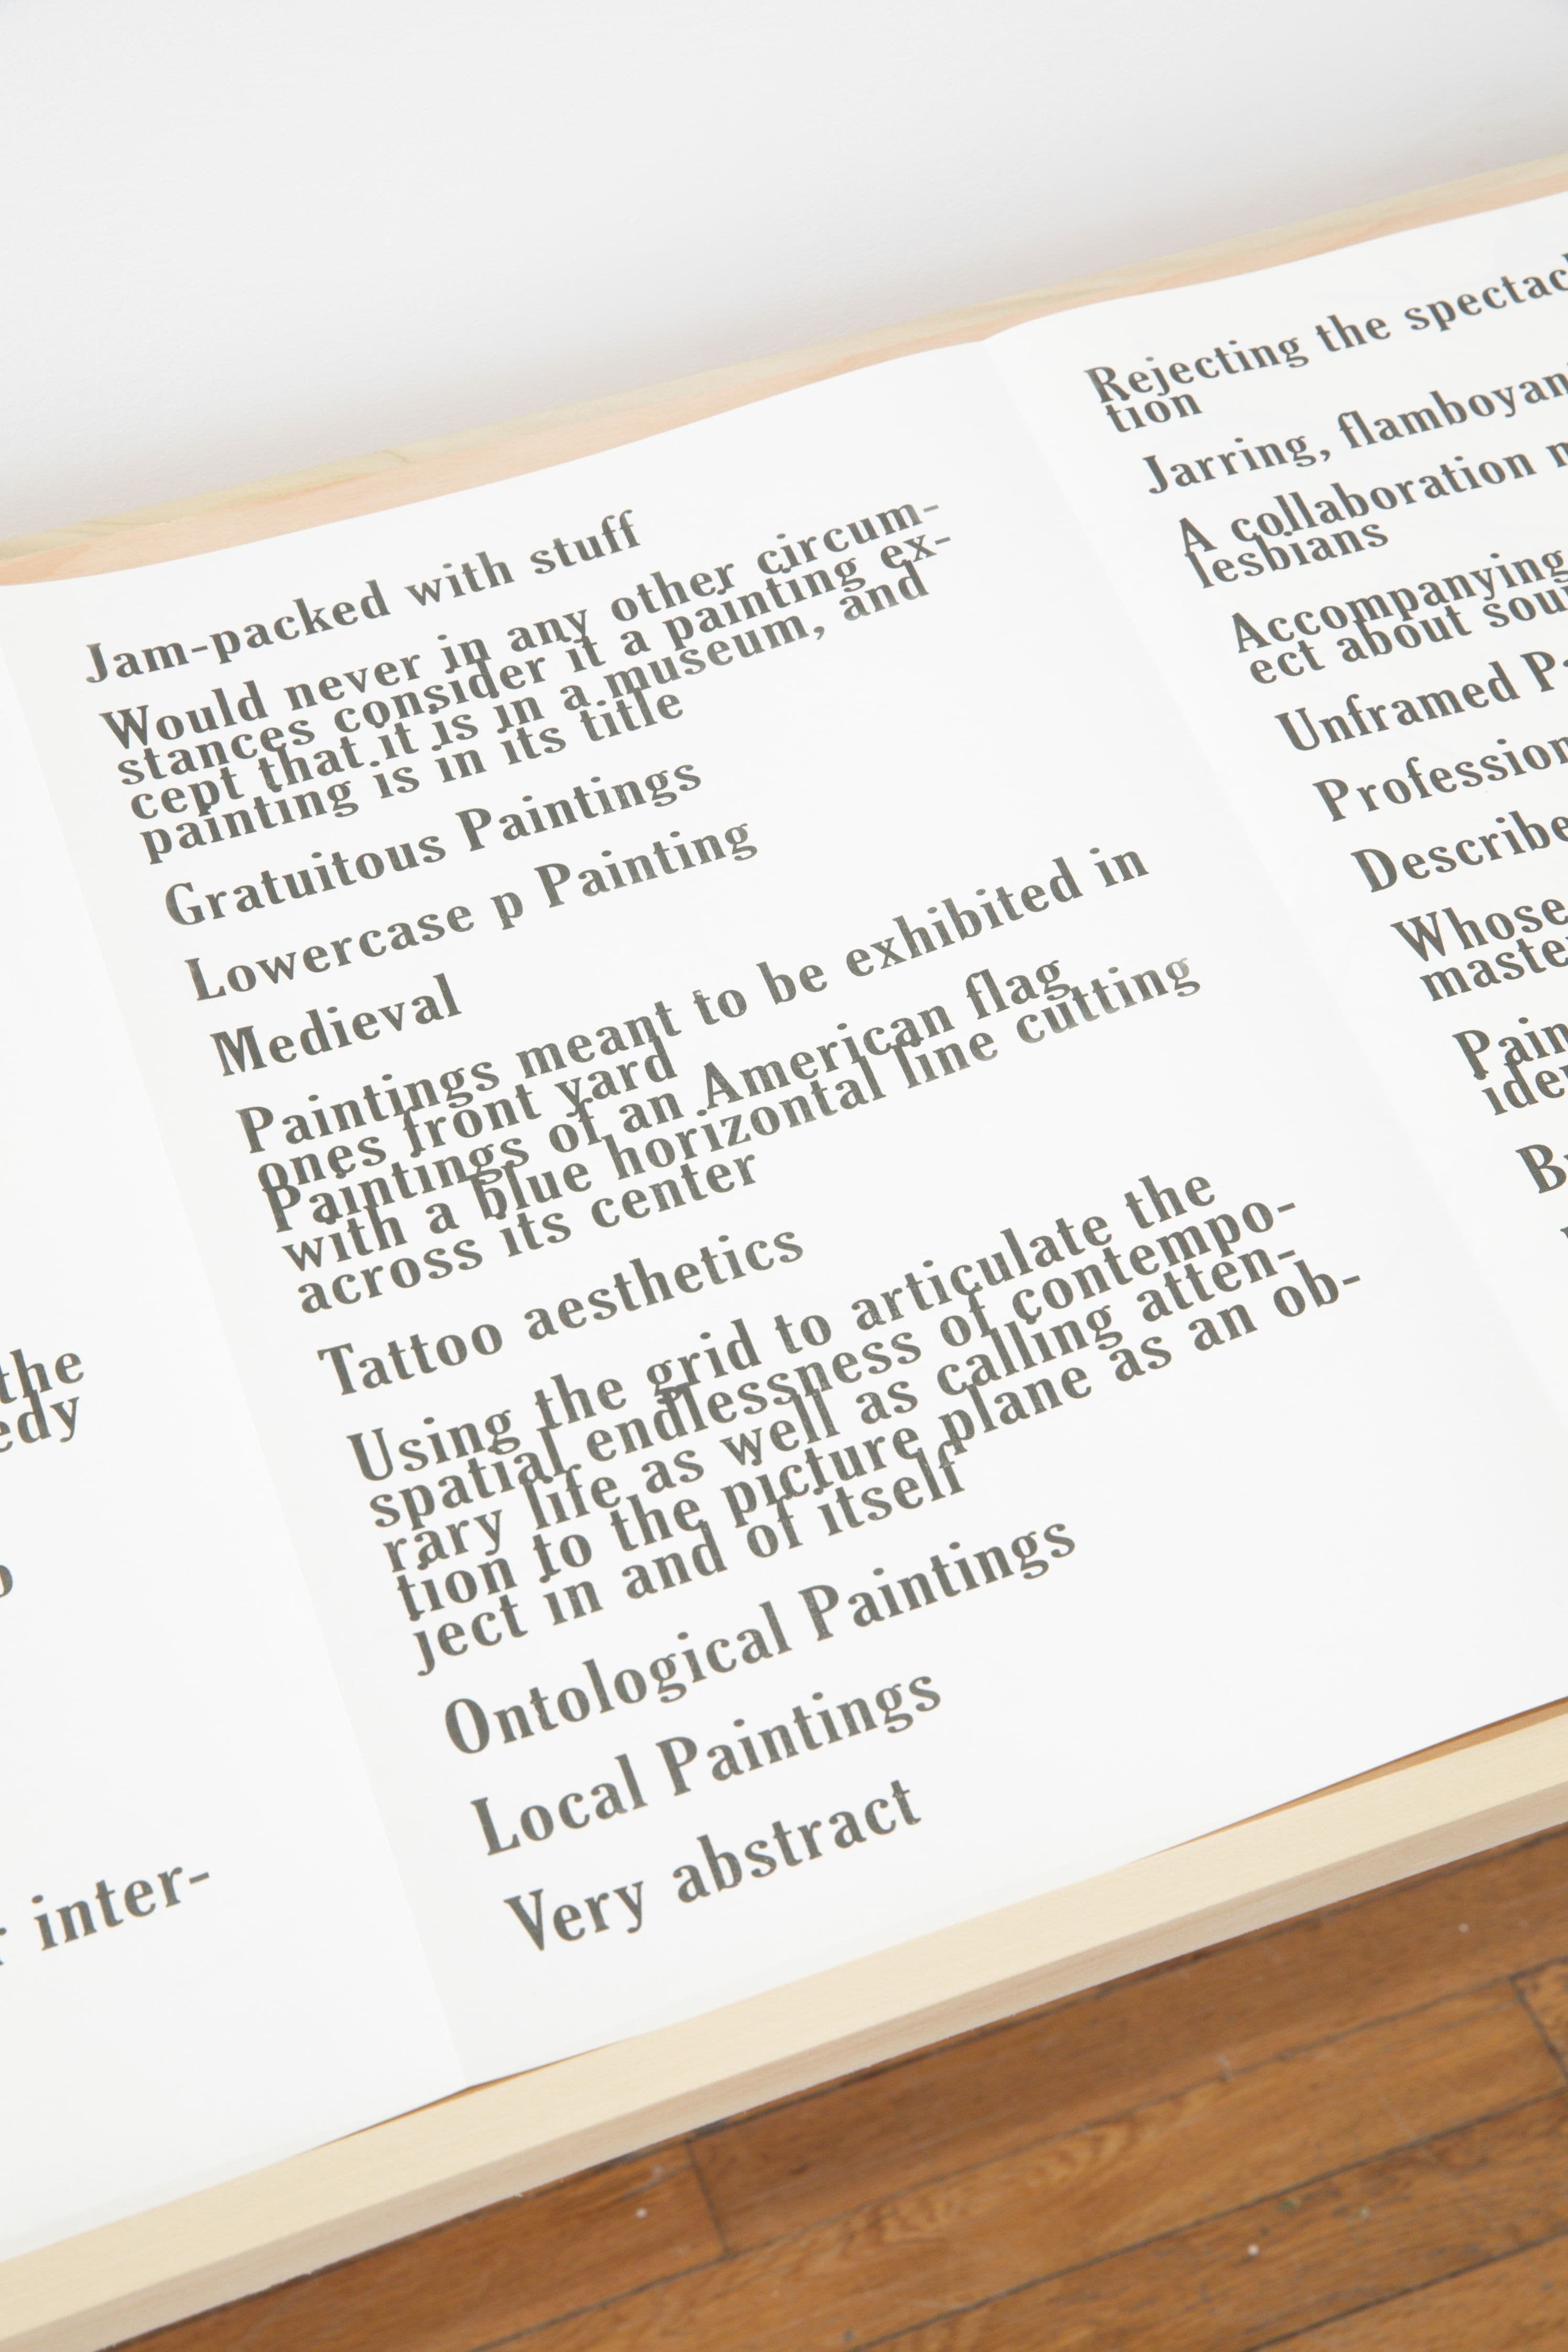 the
edy
inter-
Jam-packed with stuff
Would never in any other circum-
stances consider it a painting ex-
cept that it is in a museum, and
painting is in its title
Gratuitous Paintings
Lowercase p Painting
Medieval
Paintings meant to be exhibited in
ones front yard
Paintings of an American flag
with a blue horizontal line cutting
across its center
Tattoo aesthetics
Using the grid to articulate the
spatial endlessness of contempo-
rary life as well as calling atten-
tion to the picture plane as an ob-
ject in and of itself
Ontological Paintings
Local Paintings
Very abstract
Rejecting the
tion
Jarring,
A collaboration
lesbians
Accompanying
ect about
Unframed
Describe
Whose